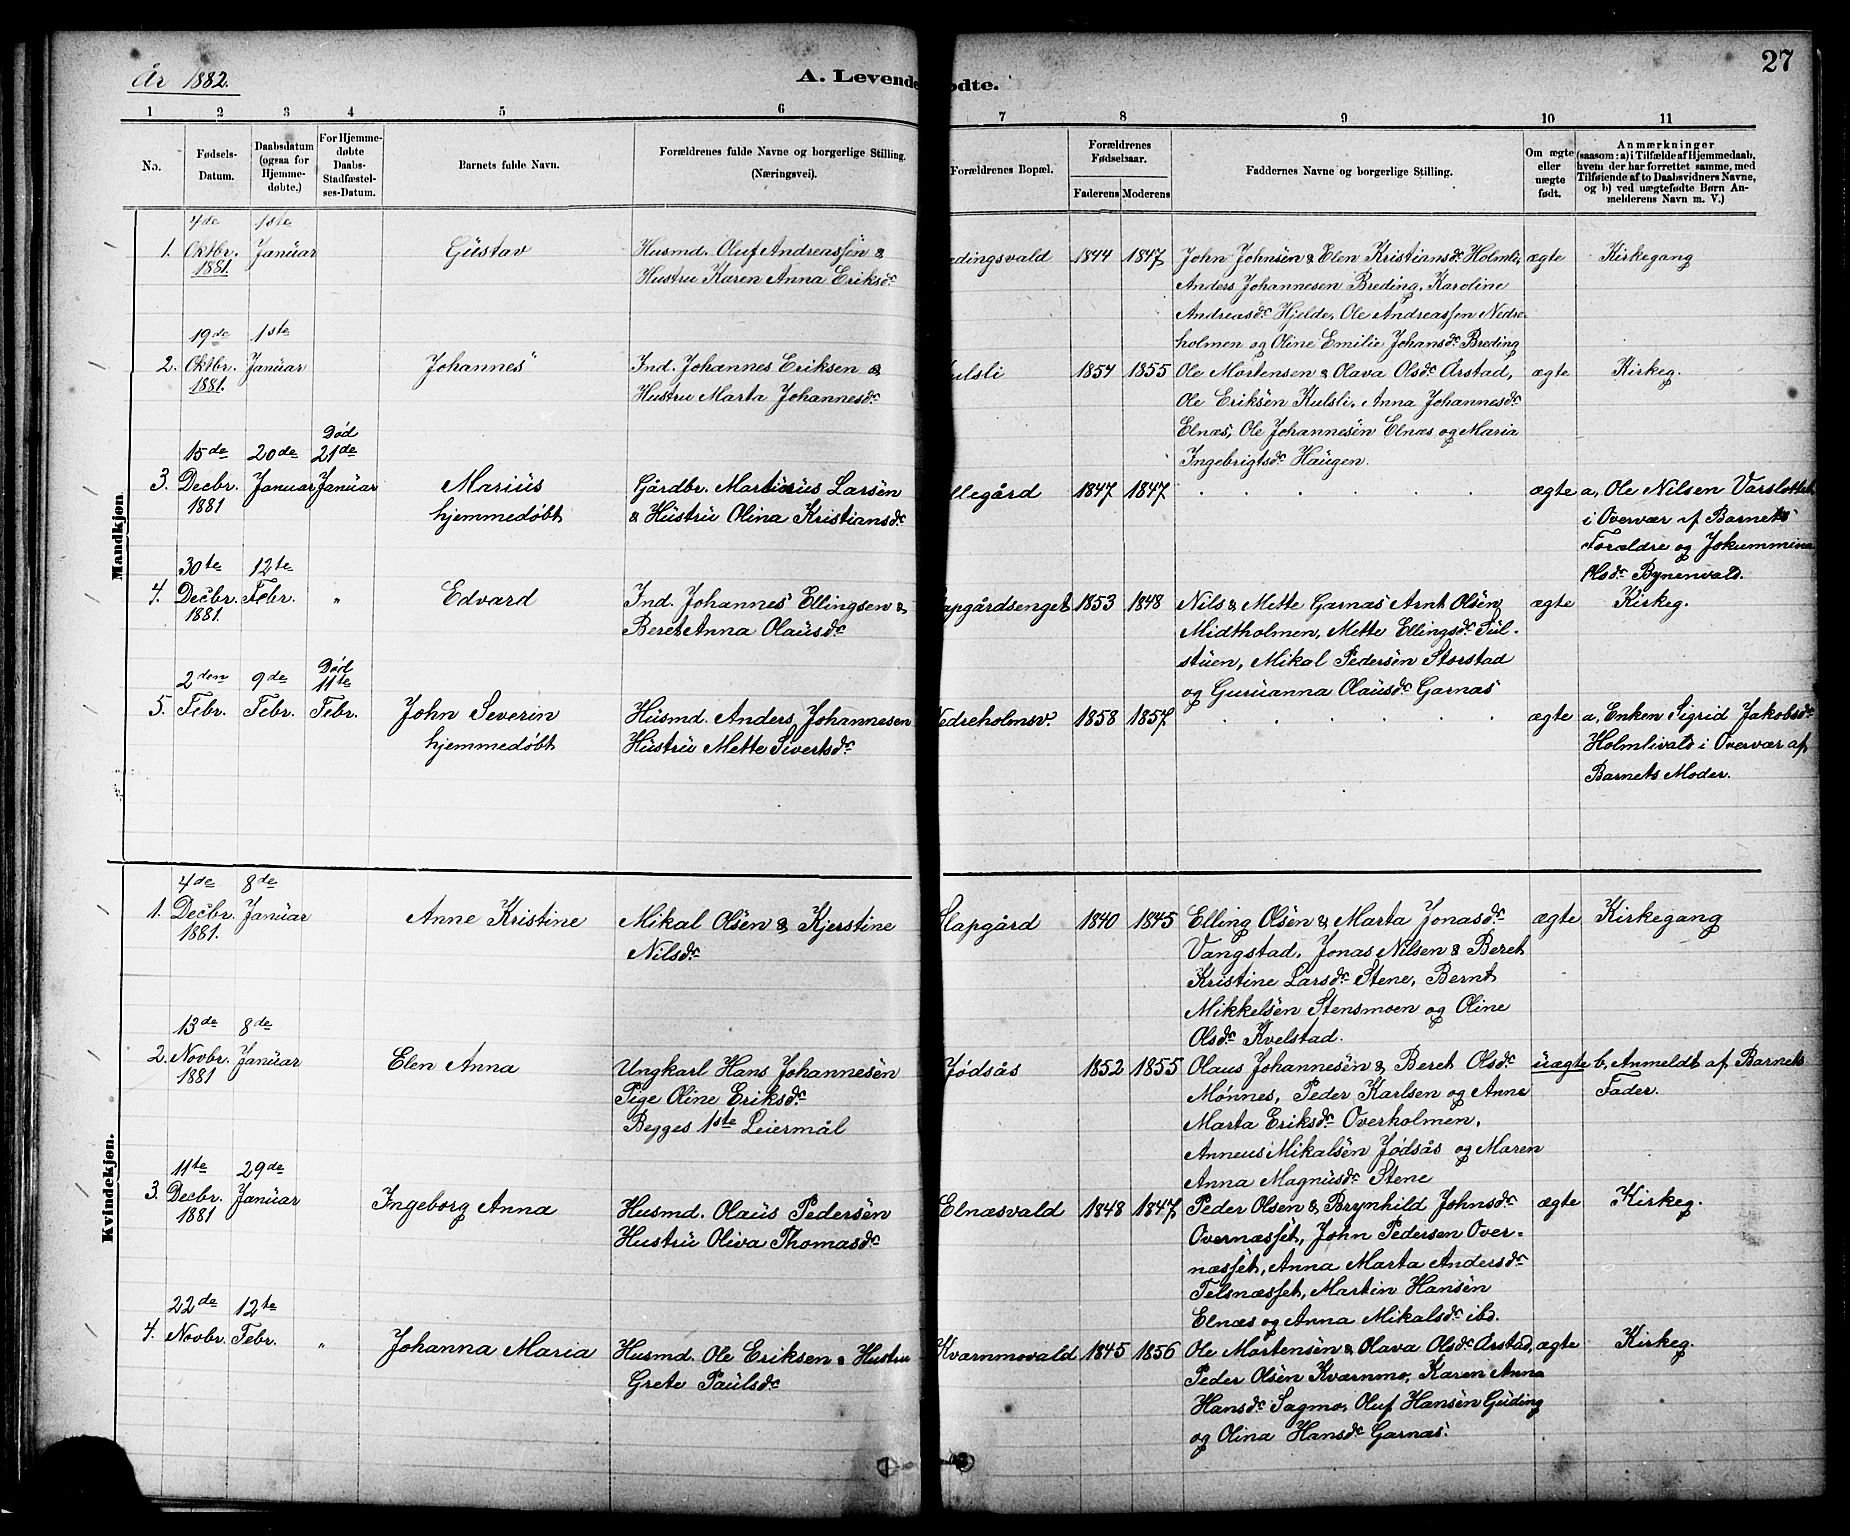 År 1882.
A. Levende
ødte.
27
1 2 3 4 5 6 7 8 9 10 11
No.
Fødsels-
Datum.
Daabsdatum
(ogsaa for
Hjemme-
døbte.)
For Hjemme-
døbte
Daabs-
Stadfæstel-
ses-Datum.
Barnets fulde Navn.
Forældrenes fulde Navne og borgerlige Stilling.
(Næringsvei).
Forældrenes Bopæl.
Forældrenes
Fødselsaar.
Faderens Moderens
Faddernes Navne og borgerlige Stilling.
Om ægte
eller
uægte
født.
Anmærkninger
(saasom: a) i Tilfælde af Hjemmedaab,
hvem der har forrettet samme, med
Tilføiende af to Daabsvidners Navne,
og b) ved uægtefødte Børn An-
melderens Navn m. V.)
Mandkjøn.
4de 1ste
1. Oktbr. Januar Gustav Husmd. Oluf Andreassen & edingsvald 1844 1847 John Johnsen & Elen Kristiansdr. Holmli, ægte Kirkegang
1881. Hustru Karen Anna Eriksdr. Anders Johannesen Breding, Karoline
Andreasdr. Hjelde, Ole Andreassen Nedre-
19de 1ste holmen og Oline Emilie Johansdr. Breding
2. Oktbr. Januar Johannes Ind. Johannes Eriksen & ulsli 1854 1855 Ole Mortensen & Olava Olsdr. Arstad, ægte Kirkeg.
1881. Hustru Marta Johannesdr. Ole Eriksen Kulsli, Anna Johannesdr.
Død Elnæs, Ole Johannesen Elnæs og Maria
15de 20de 21de Ingebrigtsdr. Haugen.
3. Decbr. Januar Januar Marius Gårdbr. Martinus Larsen llegård 1847 1847 . . . . . . ægte a, Ole Nilsen Varslottet
1881 hjemmedøbt & Hustru Olina Kristiansdr. i Overvær af Barnets
Forældre og Jokummina
30te 12te Olsdr. Bynenvald.
4. Decbr. Febr. " Edvard Ind. Johannes Ellingsen & apgårdsenget 1853 1848 Nils & Mette Garnas Arnt Olsen ægte Kirkeg.
1881. Beret Anna Olausdr. Midtholmen, Mette Ellingsdr. Sul-
Død stuen, Mikal Pedersen Storstad
2den 9de 11te og Guruanna Olausdr. Garnas
5. Febr. Febr. Febr. John Severin Husmd. Anders Johannesen Nedreholmsv. 1858 1857 . . . . . . ægte a, Enken Sigrid Jakobsdr.
hjemmedøbt Hustru Mette Sivertsdr. Holmlivald i Overvær af
Barnets Moder.
Kvindekjøn.
4de 8de
1. Decbr. Januar Anne Kristine Mikal Olsen & Kjerstine Slapgård 1840 1845 Elling Olsen & Marta Jonasdr. ægte Kirkegang
1881. Nilsdr. Vangstad, Jonas Nilsen & Beret
Kristine Larsdr. Stene, Bernt
Mikkelsen Stensmoen og Oline
13de 8de Olsdr. Kvelstad.
2. Novbr. Januar Elen Anna Ungkarl Hans Johannesen Jødsås 1852 1855 Olaus Johannesen & Beret Olsdr. uægte b, Anmeldt af Barnets
1881 Pige Oline Eriksdr. Mønnes, Peder Karlsen og Anne Fader.
Begges 1ste Leiermål Marta Eriksdr. Overholmen,
Anneus Mikalsen Jødsås og Maren
11te 29de Anna Magnusdr. Stene
3. Decbr. Januar Ingeborg Anna Husmd. Olaus Pedersen Elnæsvald 1848 1847 Peder Olsen & Brynhild Johnsdr. ægte Kirkeg.
1881 Hustru Oliva Thomasdr. Overnæsset, John Pedersen Over-
næsset, Anna Marta Andersdr.
Telsnæsset, Martin Hansen
22de 12te Elnæs og Anna Mikalsdr. ibd.
4. Novbr. Febr. " Johanna Maria Husmd. Ole Eriksen & Hustru Kvarnmovald 1845 1856 Ole Mortensen & Olava Olsdr. Arstad, ægte Kirkeg.
Grete Paulsdr. Peder Olsen Kværnmo, Karen Anna
Hansdr. Sagmo, Oluf Hansen Guding
og Olina Hansdr. Garnæs.